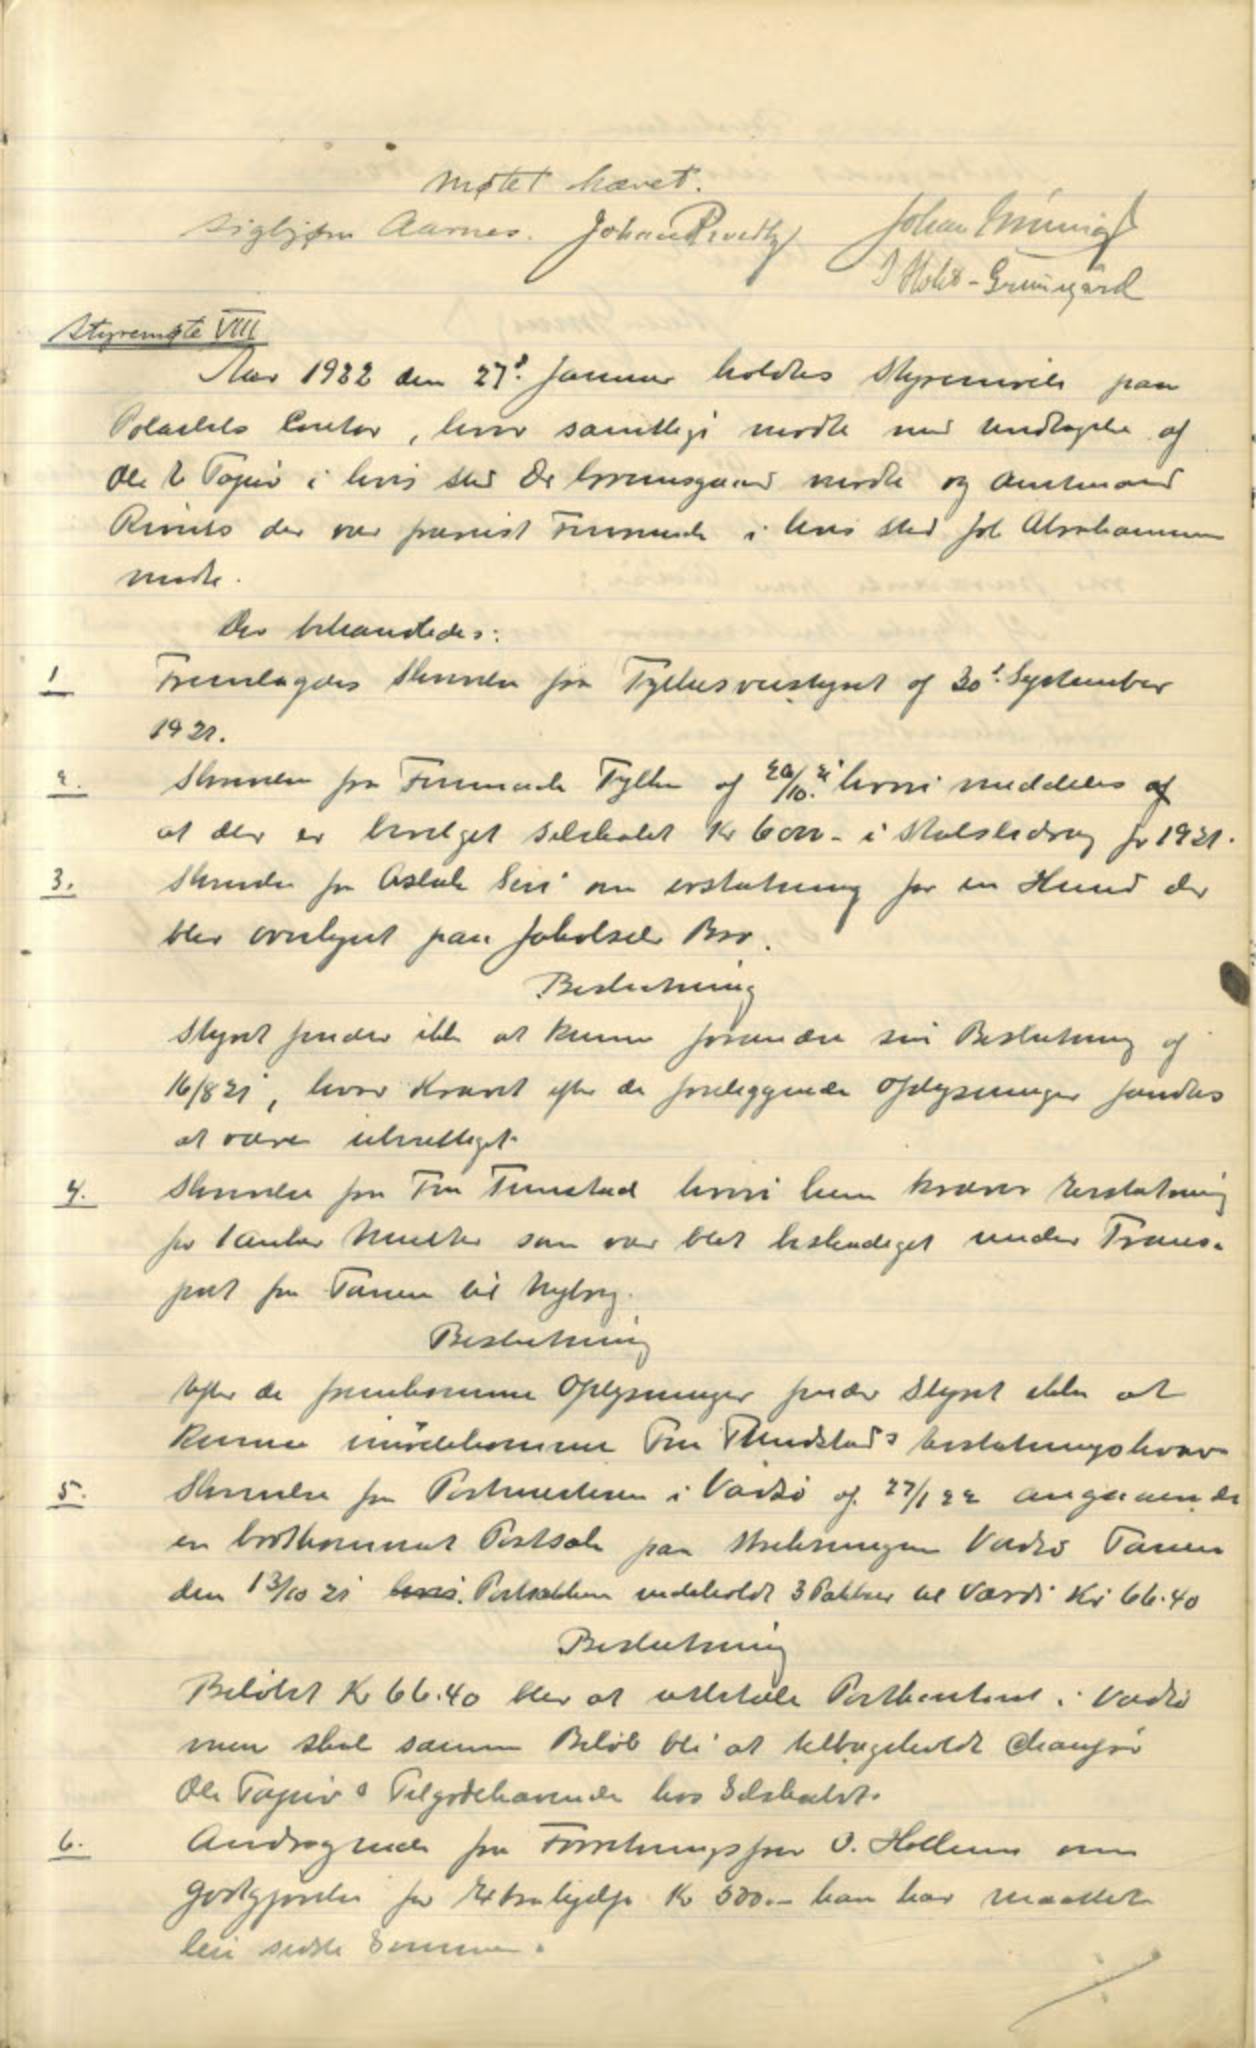 Møtet hævet.
Sigbjørn Aarnes. Johan
Johan Grünnigård
Styremøte VIII
Aar 1922 den 27d. Januar holdtes Styremøde paa
Selskabets Contor, hvor samtlige mødte med undtagelse af
Ole Tapio i hvis sted Ol mødte og Amtmand
der var præsist Finmark i hvis sted Joh Abrahamsen
mødte.
Der behandledes:
1 Fremlagdes Skrivelse fra Fylkesveistyret af 30d. September
1921.
2. Skrivelse fra Finmark Fylke af 20/10. 21 hvori meddeles af
at der er bevilget Selskabet Kr 6000.- i Statsbidrag for 1921.
3. Skrivelse fra Aslak Siri om erstatning for en Hund der
blev overkjørt paa Jakobselv Bro.
Beslutning
Styret finder ikke at kunne forandre sin Beslutning af
16/8 21, hvor Kravet efter de foreliggende Oplysninger fandtes
at være uberettiget.
4. Skrivelse fra Fru Tunstad hvori hun kræver Erstatning
for 1 anker Multer som var blet beskadiget under Trans-
port fra Tanen til Nyborg.
Beslutning
Efter de fremkomne Oplysninger finder Styret ikke at
kunne imødekomme Fru Thudstads Erstatningskrav
5. Skrivelse fra Postmesteren i Vadsø af 27/1 22 angaaende
en bortkommet Postsæk paa strekningen Vadsø Tanen
den 13/10 21 hvis. Postsækken indeholdt 3 Pakker til Værdi Kr 66.40
Beslutning
Beløbet Kr 66.40 blev at utbetale Postkontoret i Vadsø
men skal samme Beløb bli at tilbageholdt Chauffør
Ole Tapio's Tilgodehavende hos Selskabet.
6. Andragende fra Forretningsfører O. Hollum om
godtgjørelse for Extrahjælp Kr 500.- han har maattet
leie sidste Sommer.